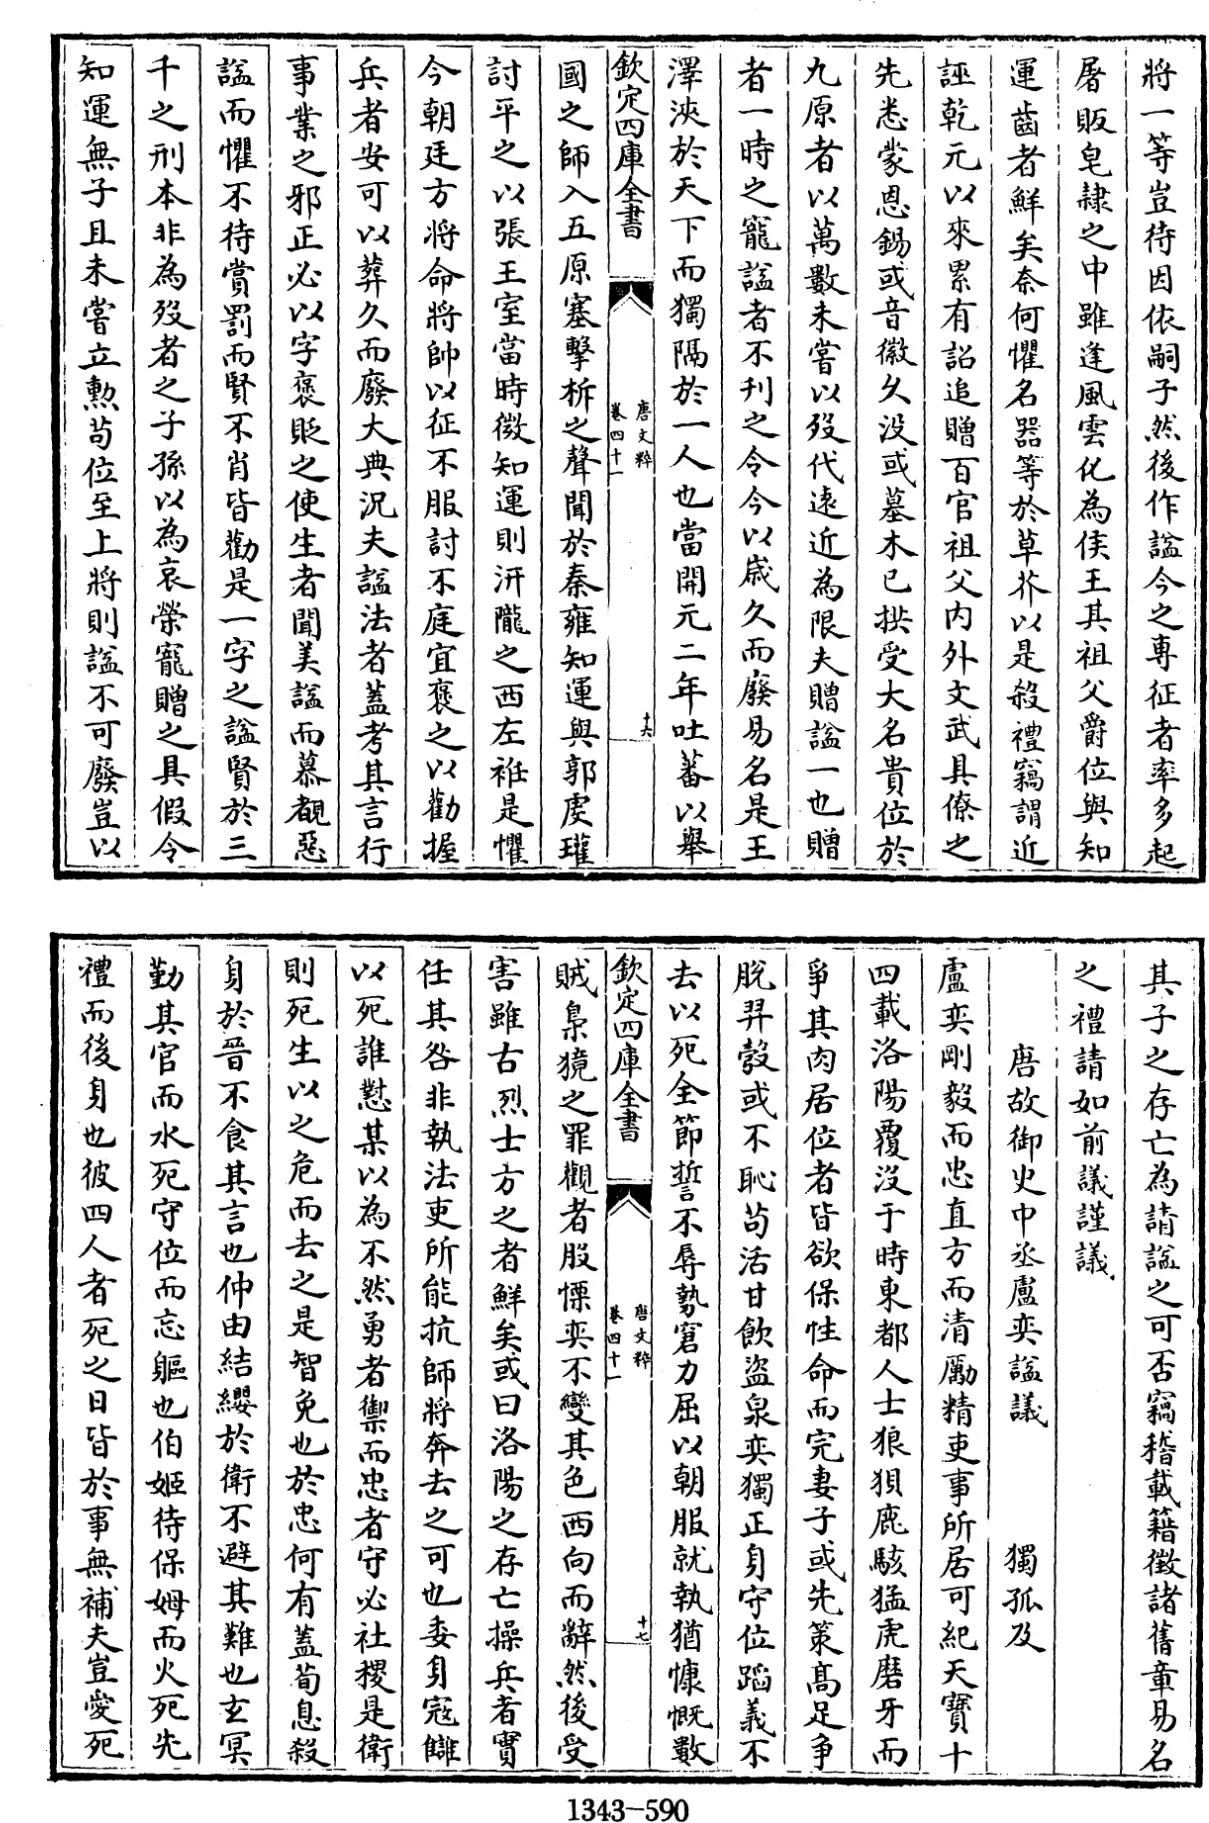 將一等豈待因依嗣子然後作諡今之專征者率多起
屠販皂隸之中雖逢風雲化為侯王其祖父爵位與知
運齒者鮮矣奈何懼名器等於草芥以是殺禮竊謂近
誣乾元以來累有詔追贈百官祖父內外文武具僚之
先悉蒙恩錫或音徽久没或墓木已拱受大名貴位於
九原者以萬數未嘗以歿代逺近為限夫贈諡一也贈
者一時之寵諡者不刊之令今以嵗久而廢易名是王
澤浹於天下而獨隔於一人也當開元二年吐蕃以舉
欽定四庫全書
唐文粹
卷四十一
十六
國之師入五原塞擊柝之聲聞於秦雍知運與郭䖍瓘
討平之以張王室當時微知運則汧隴之西左袵是懼
今朝廷方將命將帥以征不服討不庭宜褒之以勸握
兵者安可以葬久而廢大典況夫諡法者蓋考其言行
事業之邪正必以字褒貶之使生者聞美諡而慕覩惡
諡而懼不待賞罰而賢不肖皆勸是一字之諡賢於三
千之刑本非為歿者之子孫以為哀榮寵贈之具假令
知運無子且未嘗立勲苟位至上將則諡不可廢豈以
其子之存亡為請諡之可否竊稽載籍徵諸舊章易名
之禮請如前議謹議
唐故御史中丞盧奕諡議 獨孤及
盧奕剛毅而忠直方而清勵精吏事所居可紀天寶十
四載洛陽覆沒于時東都人士狼狽鹿駭猛虎磨牙而
爭其肉居位者皆欲保性命而完妻子或先策髙足争
脫羿彀或不恥苟活甘飲盜泉奕獨正身守位蹈義不
去以死全節誓不辱勢窘力屈以朝服就執猶慷慨數
欽定四庫全書
唐文粹
卷四十一
十七
賊梟獍之罪觀者股慄奕不變其色西向而辭然後受
害雖古烈士方之者鮮矣或曰洛陽之存亡操兵者實
任其咎非執法吏所能抗師將奔去之可也委身寇讎
以死誰懟某以為不然勇者禦而忠者守必社稷是衛
則死生以之危而去之是智免也於忠何有蓋荀息殺
身於晉不食其言也仲由結纓於衛不避其難也玄冥
勤其官而水死守位而忘軀也伯姬待保姆而火死先
禮而後身也彼四人者死之日皆於事無補夫豈愛死
1343-590